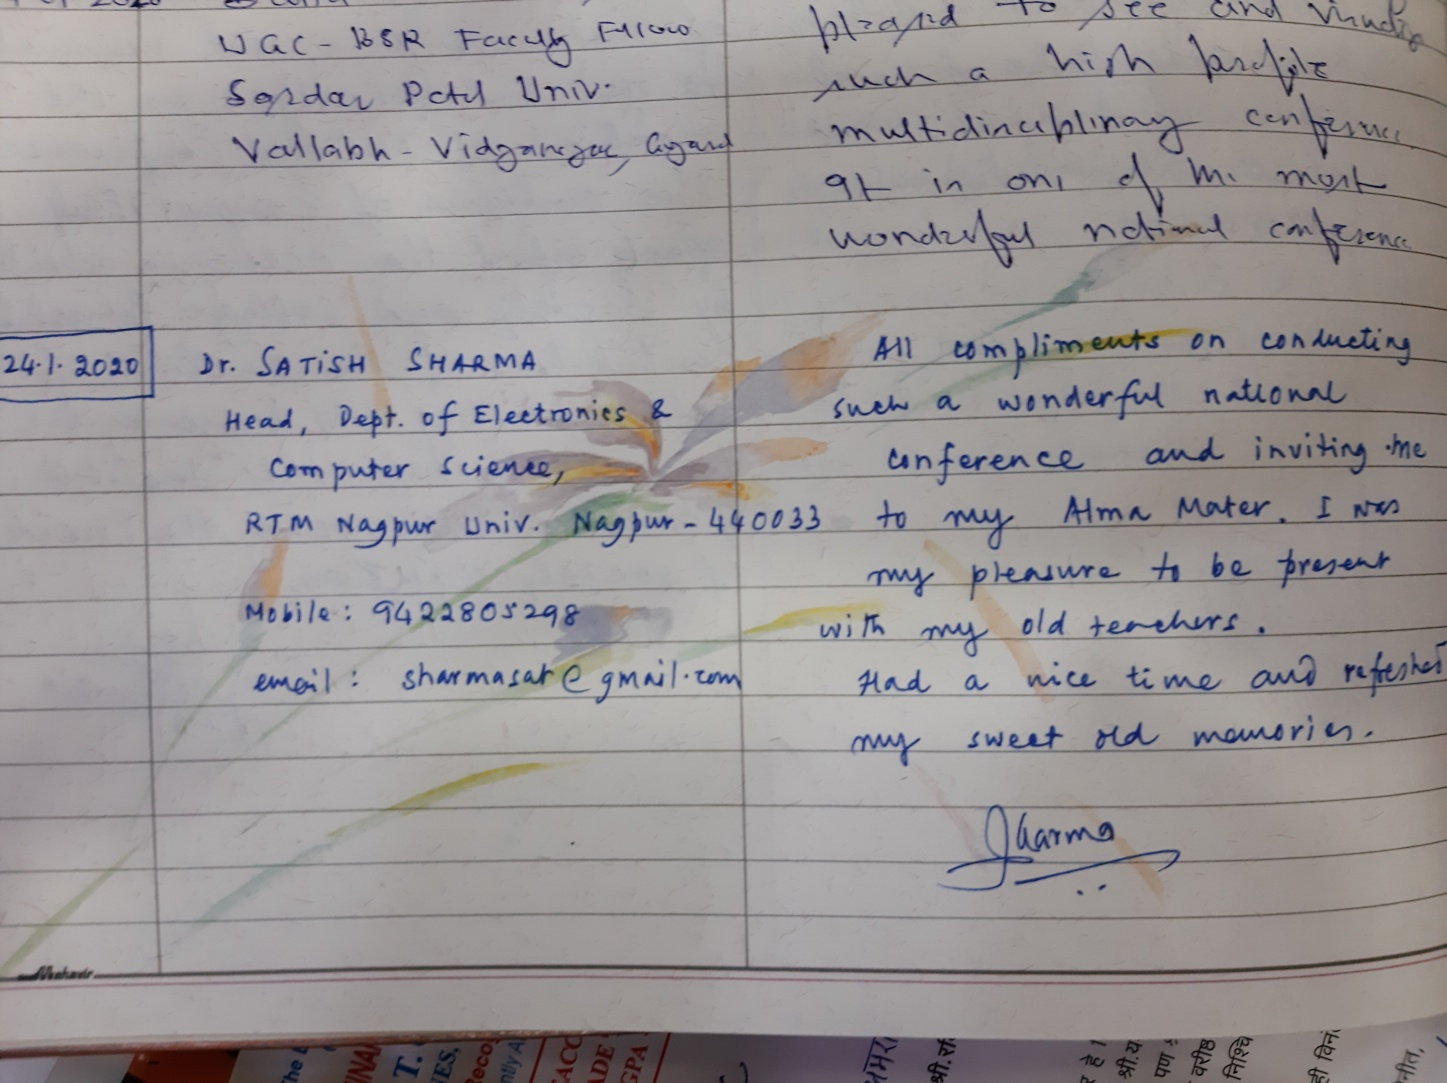 UGC-BSR Faculty Fellow
Sardar Patel Univ.
Vallabh-Vidyanagar, Anand
to see and
such a high profile
multidisciplinary conference
It is one of the most
wonderful national conference
24.1.2020
Dr. SATISH SHARMA
Head, Dept. of Electronics &
Computer Science,
RTM Nagpur Univ. Nagpur-440033
Mobile: 9422805298
email: sharmasat@gmail.com
All compliments on conducting
such a wonderful national
conference and inviting me
to my Alma Mater. I was
my pleasure to be present
with my old teachers.
Had a nice time and refreshed
my sweet old memories.
Sharma